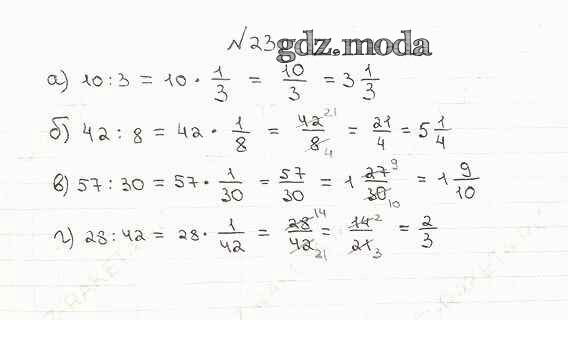 № 23 gdz.moda
а) 10 : 3 = 10 · 1/3 = 10/3 = 3 1/3
б) 42 : 8 = 42 · 1/8 = 42 21/8 4 = 21/4 = 5 1/4
в) 57 : 30 = 57 · 1/30 = 57/30 = 1 27 9/30 10 = 1 9/10
г) 28 : 42 = 28 · 1/42 = 28 14/42 21 = 14 2/21 3 = 2/3